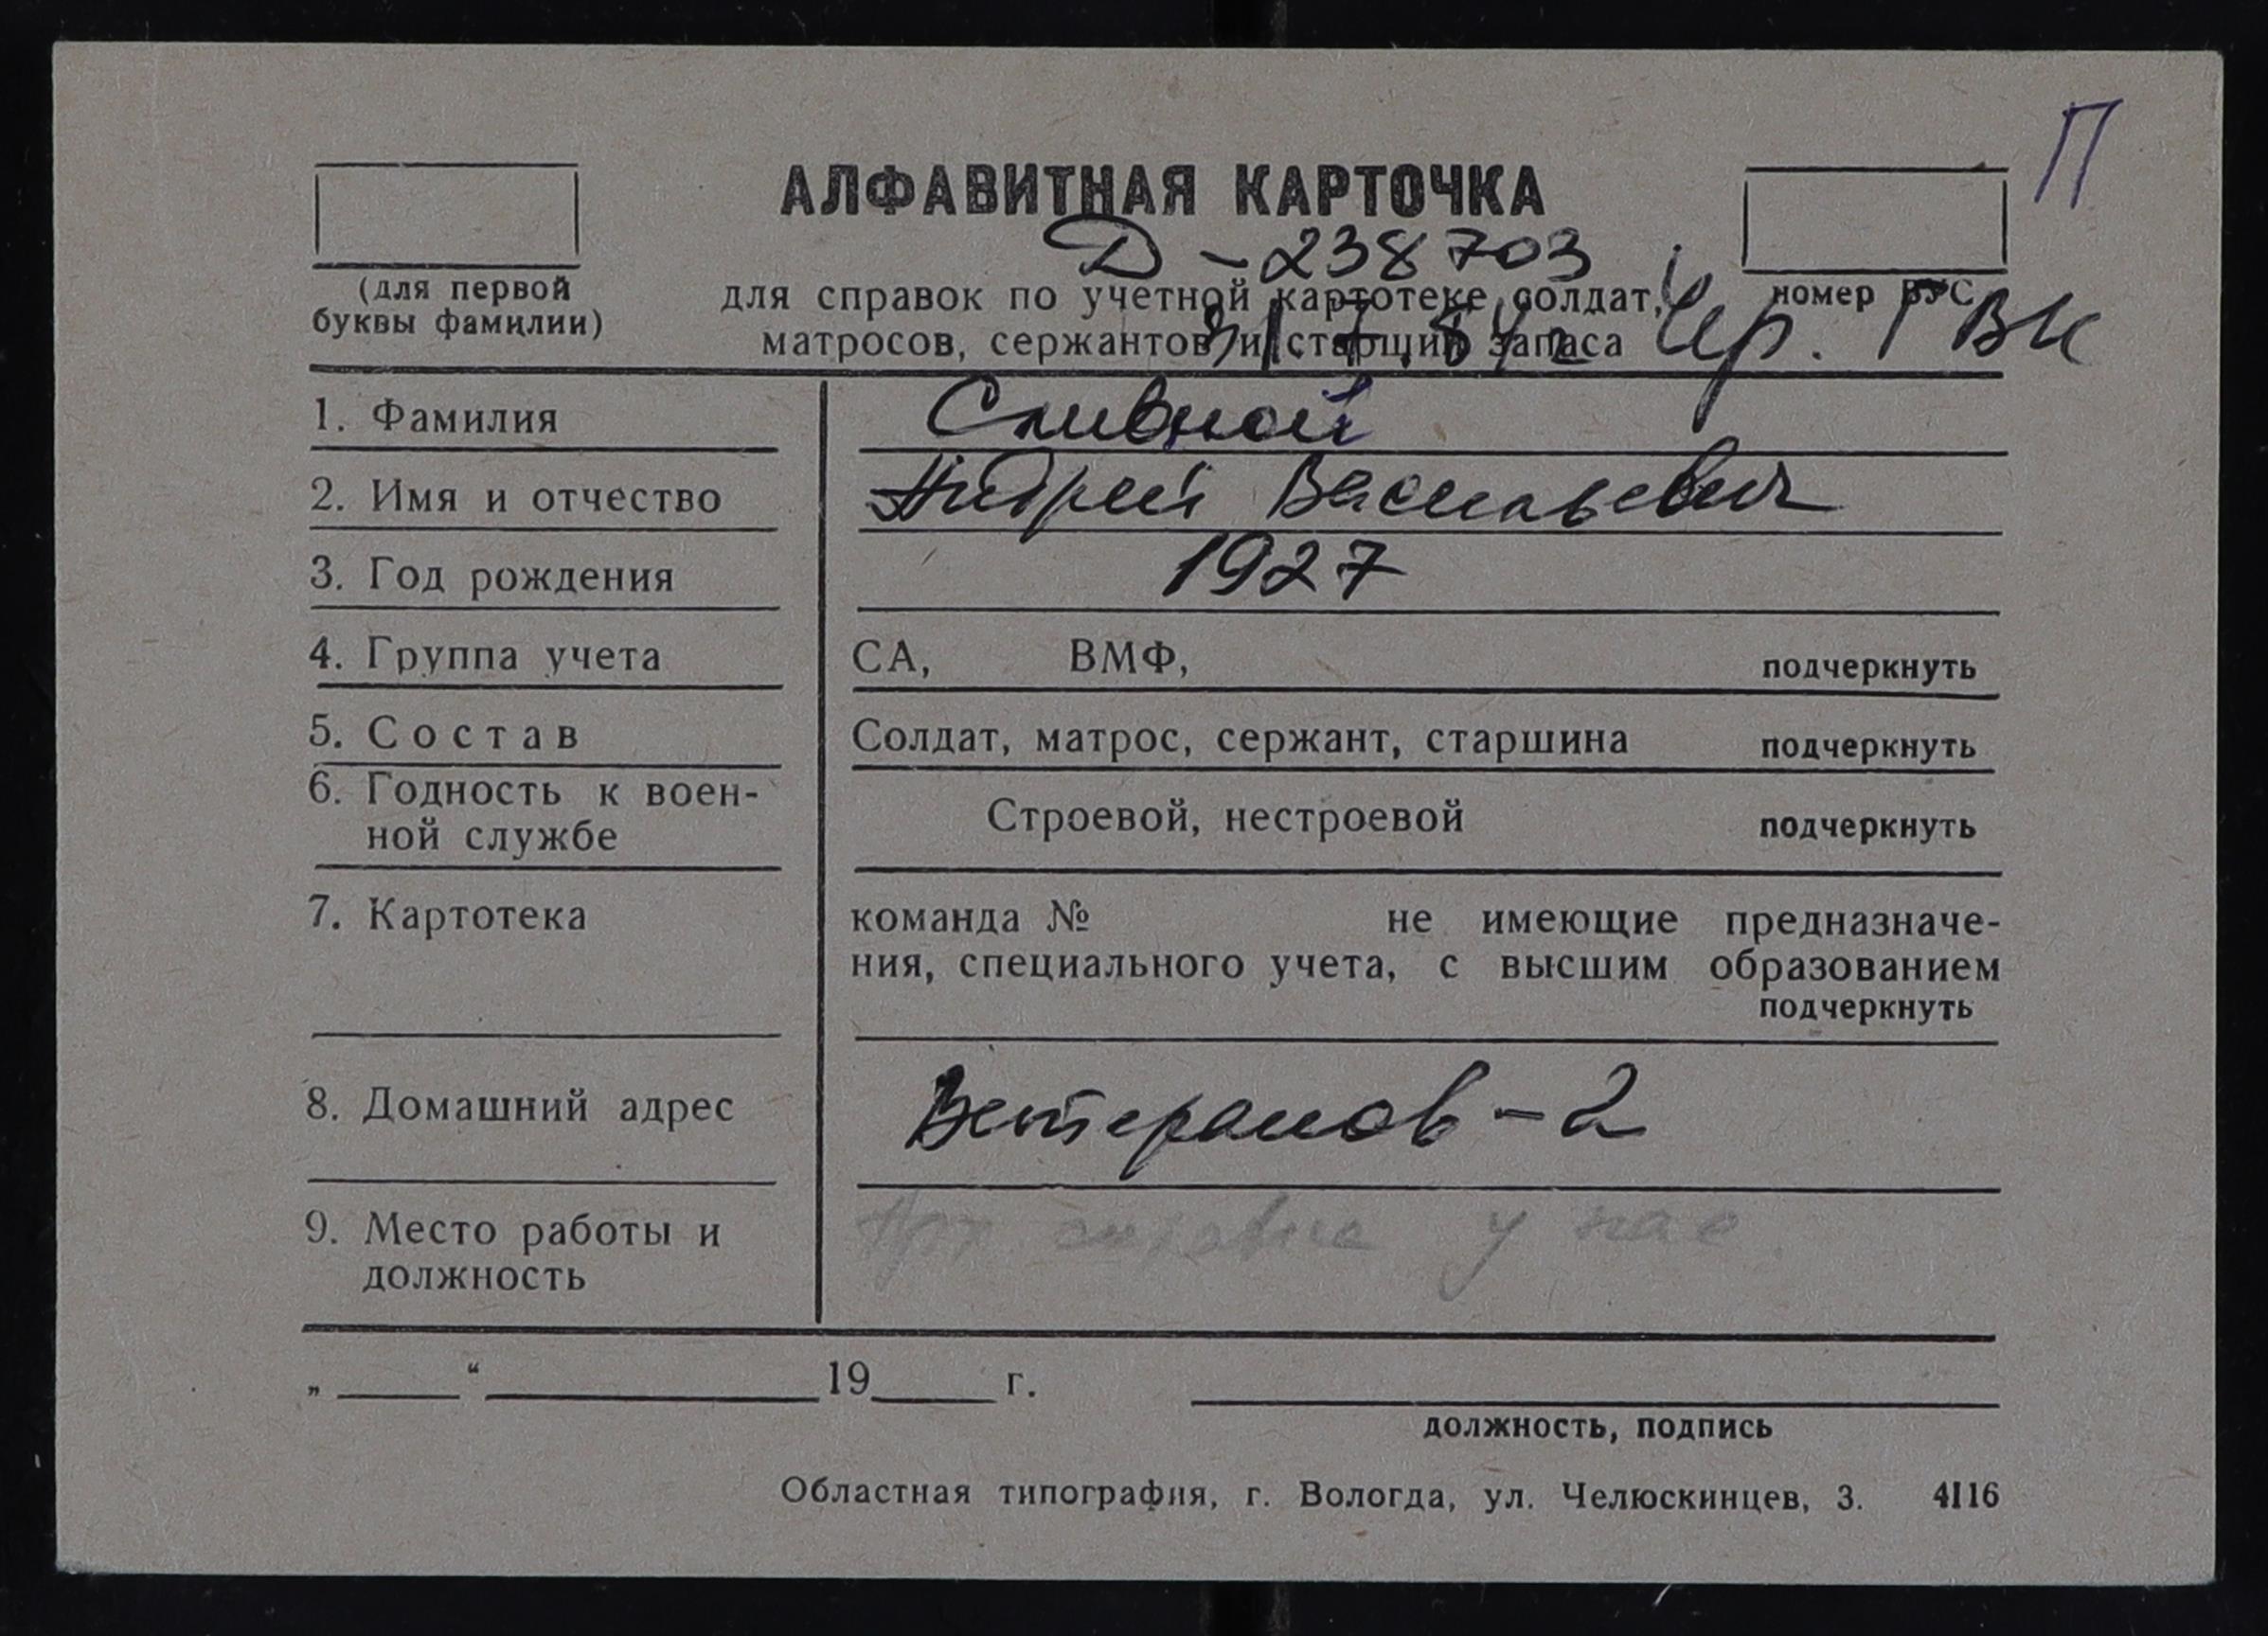 П
АЛФАВИТНАЯ КАРТОЧКА
Д - 238703
(для первой
буквы фамилии)
для справок по учетной картотеке солдат,
матросов, сержантов и старшин запаса
номер ВУС
Чер. ГВК
1. Фамилия
Сливной
2. Имя и отчество
Андрей Васильевич
3. Год рождения
1927
4. Группа учета
СА, ВМФ, подчеркнуть
5. Состав
Солдат, матрос, сержант, старшина подчеркнуть
6. Годность к воен-
ной службе
Строевой, нестроевой подчеркнуть
7. Картотека
команда № не имеющие предназначе-
ния, специального учета, с высшим образованием
подчеркнуть
8. Домашний адрес
Ветеранов - 2
9. Место работы и
должность
у нас
„ “ 19 г.
должность, подпись
Областная типография, г. Вологда, ул. Челюскинцев, 3. 4116